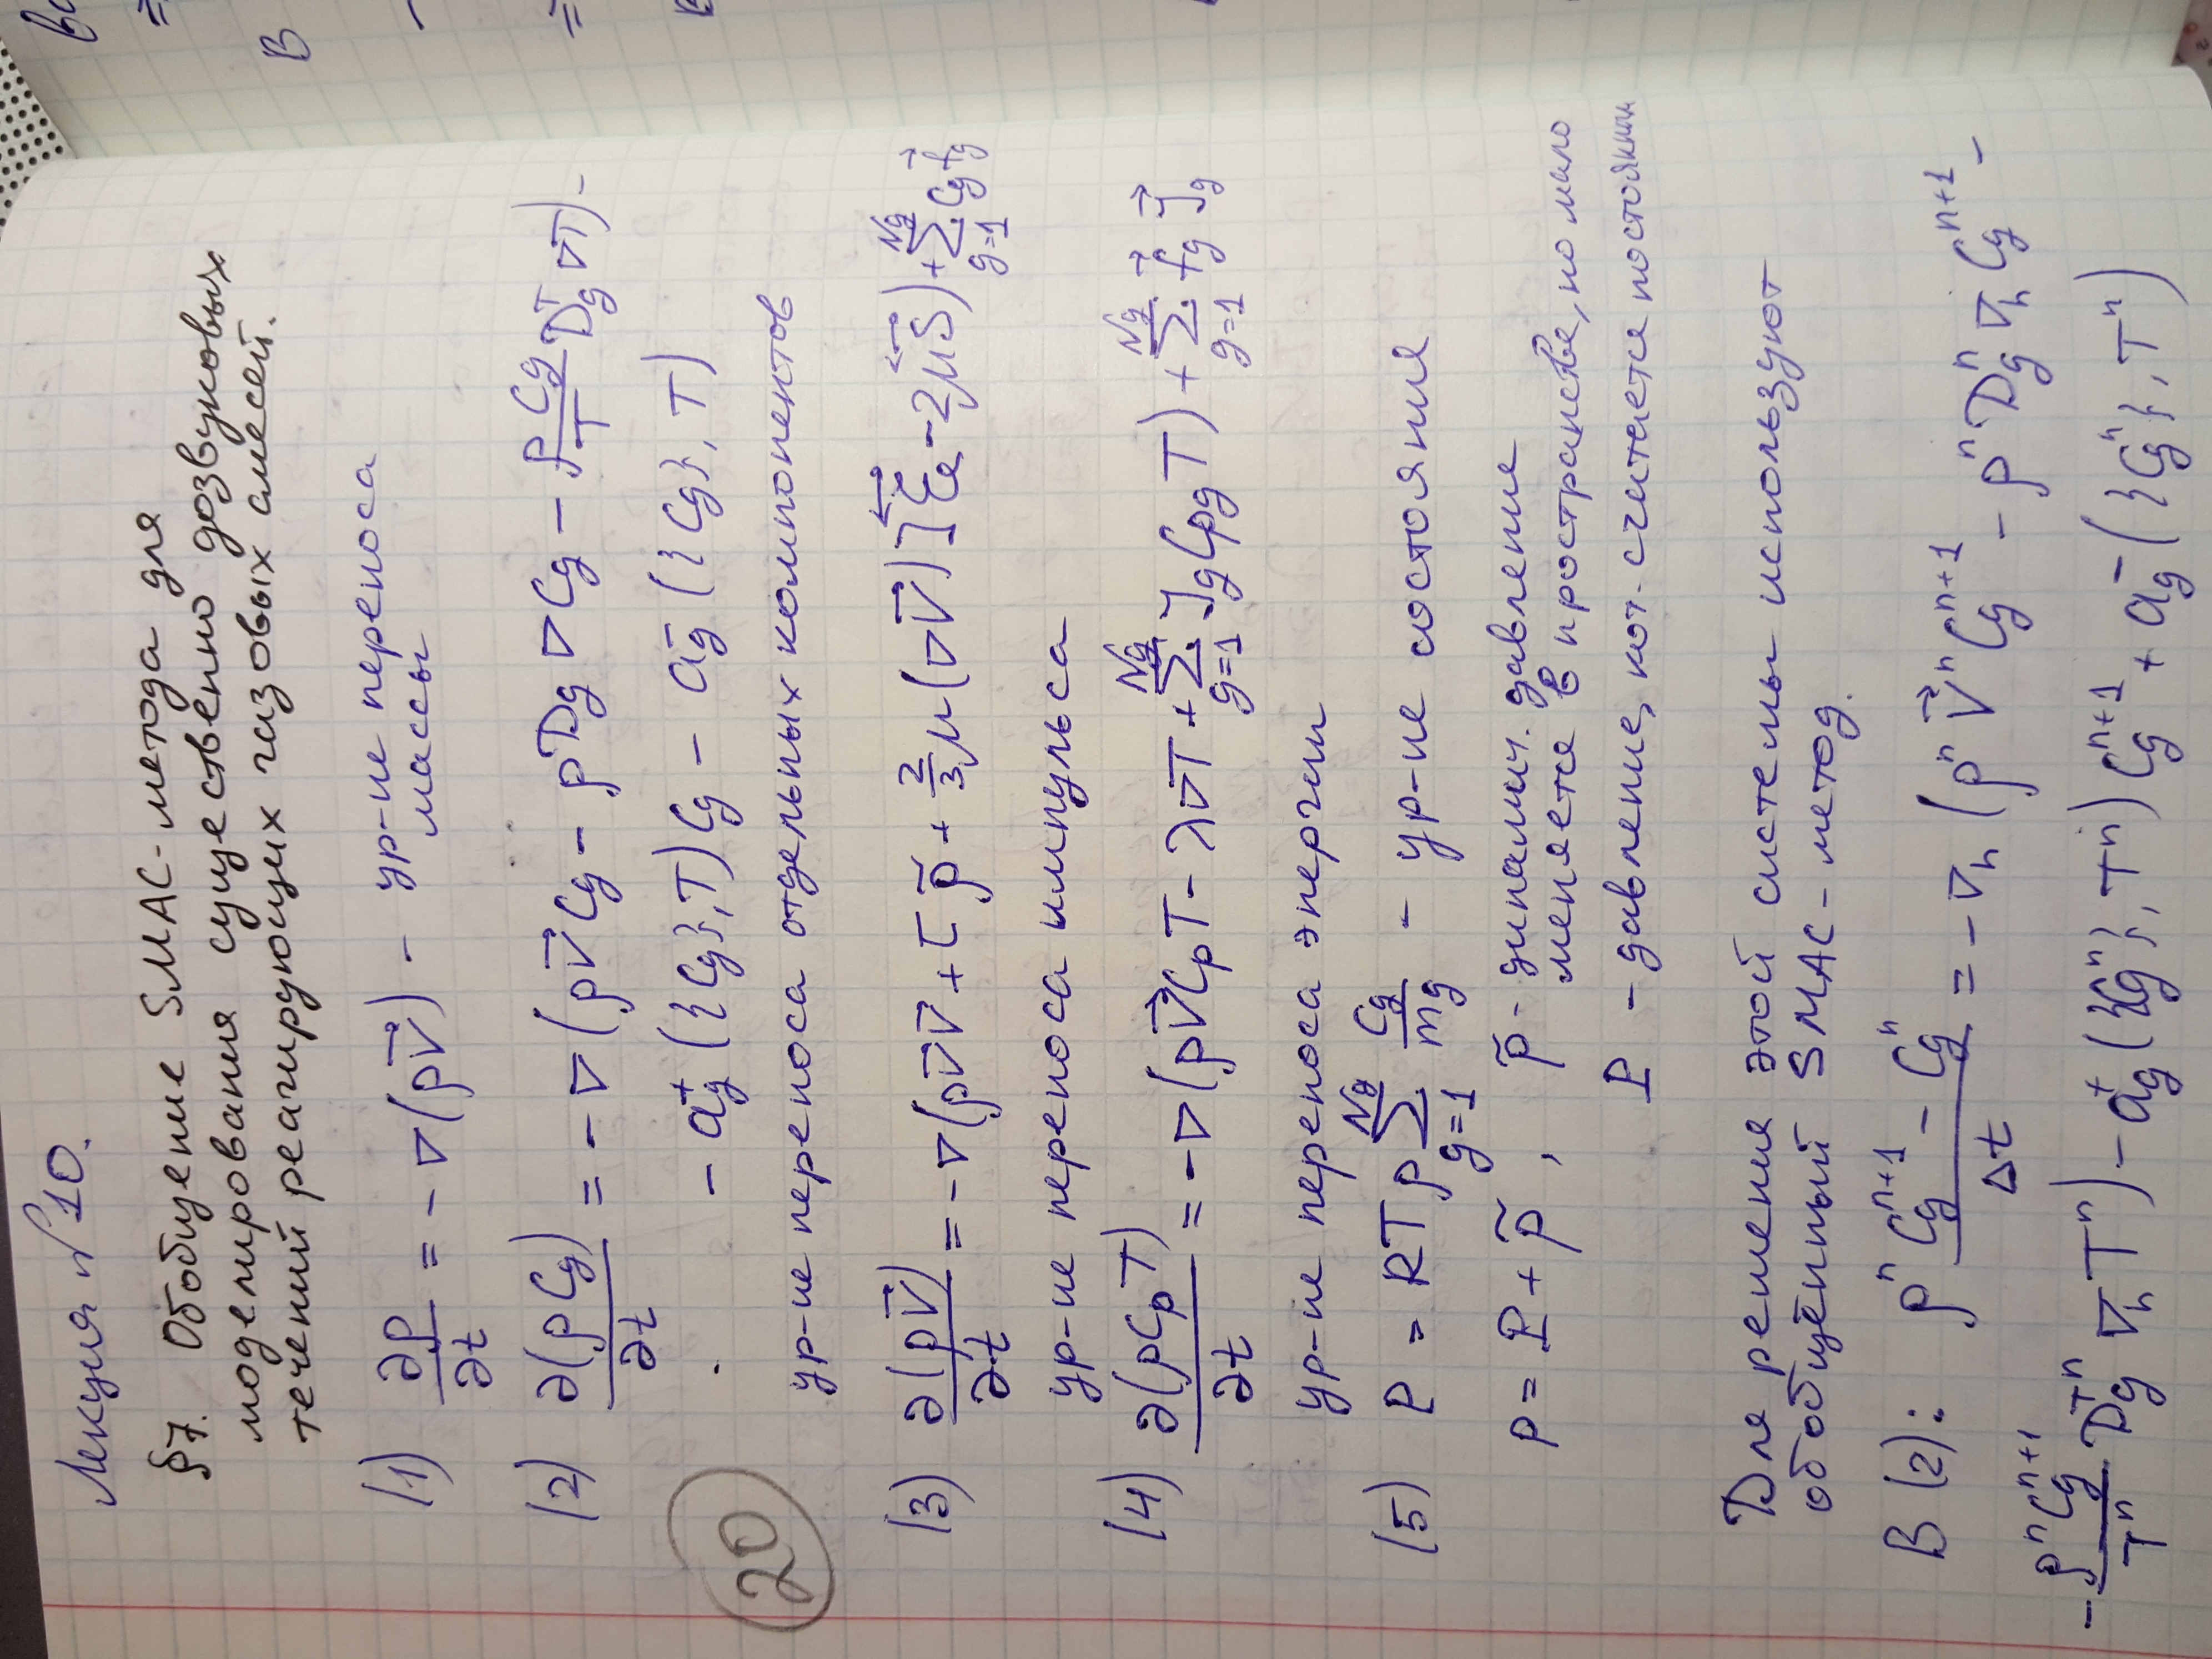 Лекция №10.
§7. Обобщение SMAC-метода для
моделирования существенно дозвуковых
течений реагирующих газовых смесей.
(1) ∂ρ/∂t = -∇(ρV⃗) - ур-ие переноса
массы
(2) ∂(ρCg)/∂t = -∇(ρV⃗Cg - ρDg∇Cg - ρCg/T Dg^T ∇T) -
- ag^+({Cg},T)Cg - ag^-({Cg},T)
20
ур-ие переноса отдельных компонентов
(3) ∂(ρV⃗)/∂t = -∇(ρV⃗V⃗ + [p̃ + 2/3 μ(∇V⃗)] - 2μS) + Σ_{g=1}^{Ng} Cg f⃗g
ур-ие переноса импульса
(4) ∂(ρCpT)/∂t = -∇(ρV⃗CpT - λ∇T + Σ_{g=1}^{Ng} Jg CpgT) + Σ_{g=1}^{Ng} f⃗g J⃗g
ур-ие переноса энергии
(5) P = RTρ Σ_{g=1}^{Ng} Cg/mg - ур-ие состояния
p = P + p̃, p̃ - динамич. давление
меняется в пространстве, но мало
P - давление, кот. считается постоянным
Для решения этой системы используют
обобщённый SMAC-метод.
В (2): ρ^n (Cg^{n+1} - Cg^n)/Δt = -∇h (ρ^n V⃗^n Cg^{n+1} - ρ^n Dg^n ∇h Cg^{n+1} -
- ρ^n Cg^{n+1}/T^n Dg^{Tn} ∇h T^n) - ag^+({Cg^n}, T^n) Cg^{n+1} + ag^-({Cg^n}, T^n)